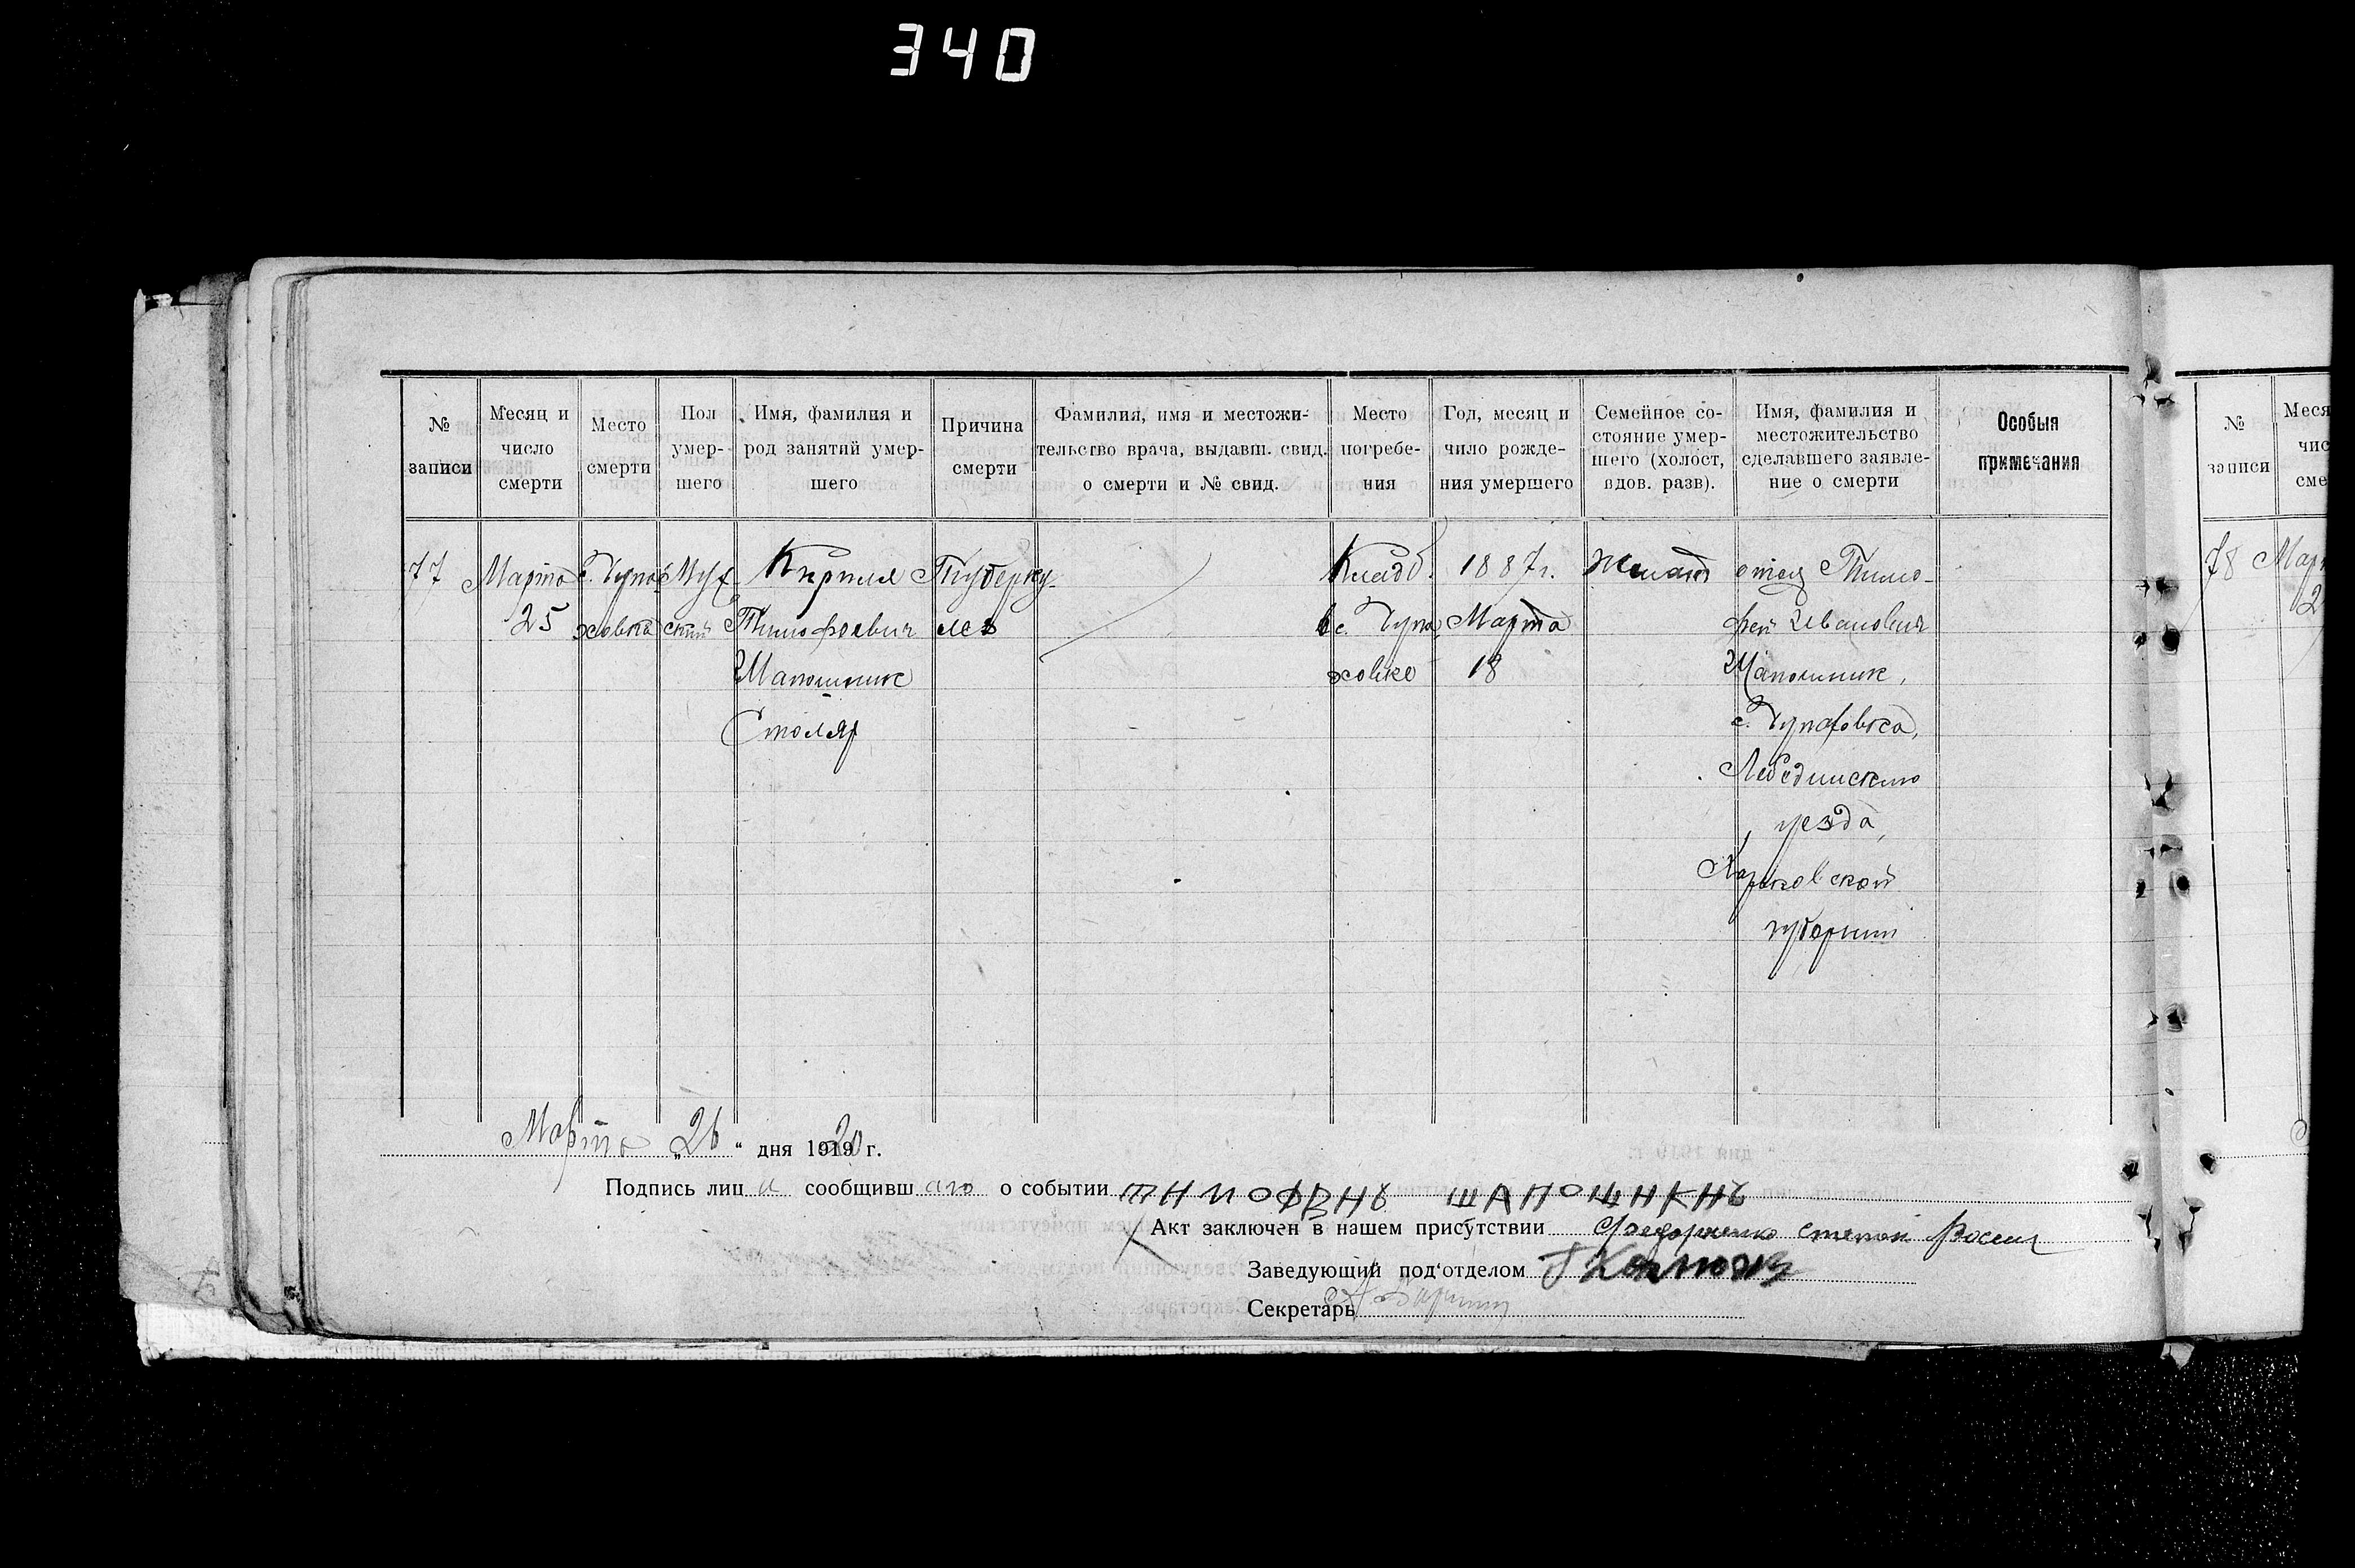 340
№ записи
Месяц и число смерти
Место смерти
Пол умер- шего
Имя, фамилия и род занятий умер- шего
Причина смерти
Фамилия, имя и местожи- тельство врача, выдавш. свид. о смерти и № свид.
Место погребе- ния
Год, месяц и число рожде- ния умершего
Семейное со- стояние умер- шего (холост, вдов. разв).
Имя, фамилия и местожительство сделавшего заявле- ние о смерти
Особыя примечания
№ записи
Меся
чис
сме
77
Марта
25
с. Чупа-
ховка
Муж-
ский
Кирилл
Тимофеевич
Шапошник
Столяр
Туберку-
лез
Кладб.
в с. Чупа-
ховке
1887 г.
Марта
18
Женат
отец Тимо-
фей Иванович
Шапошник,
с. Чупаховка,
Лебединского
уезда,
Харьковской
губернии
78 Мар
2
Марта „26“ дня 1920 г.
Подпись лица сообщившаго о событии ТИМОФЕИЬ ШАПОШНИКЪ
Акт заключен в нашем присутствии Федорченко
Заведующий под‘отделом
Секретарь